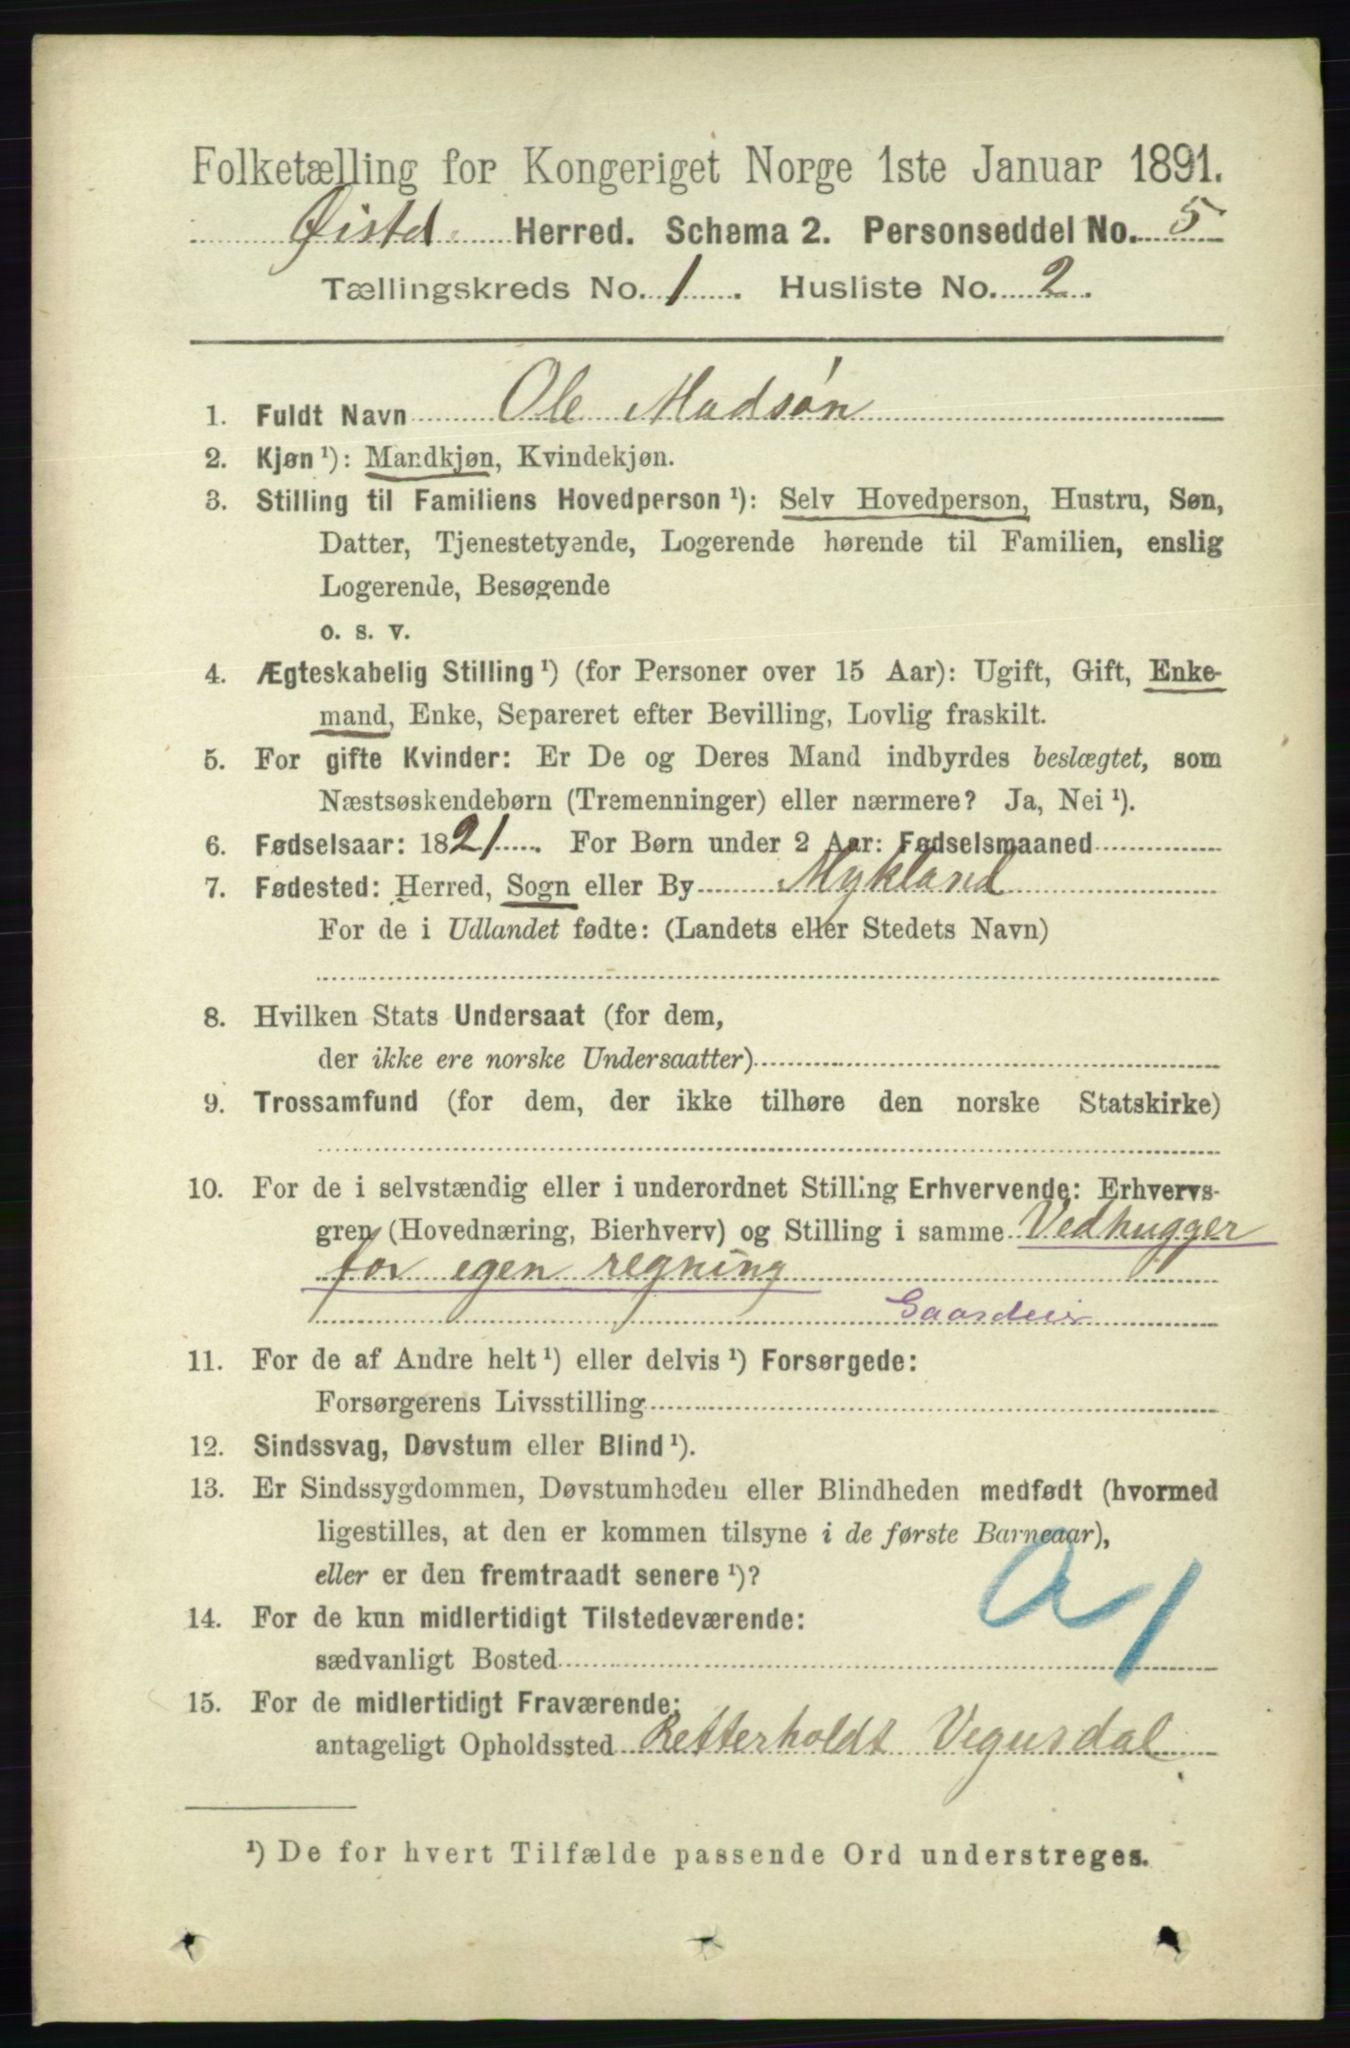 Folketælling for Kongeriget Norge 1ste Januar 1891.
Øistd. Herred. Schema 2. Personseddel No. 5
Tællingskreds No. 1. Husliste No. 2.
1. Fuldt Navn Ole Madsøn
2. Kjøn ¹): Mandkjøn, Kvindekjøn.
3. Stilling til Familiens Hovedperson ¹): Selv Hovedperson, Hustru, Søn,
Datter, Tjenestetyende, Logerende hørende til Familien, enslig
Logerende, Besøgende
o. s. v.
4. Ægteskabelig Stilling ¹) (for Personer over 15 Aar): Ugift, Gift, Enke-
mand, Enke, Separeret efter Bevilling, Lovlig fraskilt.
5. For gifte Kvinder: Er De og Deres Mand indbyrdes beslægtet, som
Næstsøskendebørn (Tremenninger) eller nærmere? Ja, Nei ¹).
6. Fødselsaar: 1821. For Børn under 2 Aar: Fødselsmaaned
7. Fødested: Herred, Sogn eller By Mykland
For de i Udlandet fødte: (Landets eller Stedets Navn)
8. Hvilken Stats Undersaat (for dem,
der ikke ere norske Undersaatter)
9. Trossamfund (for dem, der ikke tilhøre den norske Statskirke)
10. For de i selvstændig eller i underordnet Stilling Erhvervende: Erhvervs-
gren (Hovednæring, Bierhverv) og Stilling i samme Vedhugger
for egen regning
11. For de af Andre helt ¹) eller delvis ¹) Forsørgede:
Forsørgerens Livsstilling
12. Sindssvag, Døvstum eller Blind ¹).
13. Er Sindssygdommen, Døvstumheden eller Blindheden medfødt (hvormed
ligestilles, at den er kommen tilsyne i de første Barneaar),
eller er den fremtraadt senere ¹)?
14. For de kun midlertidigt Tilstedeværende:
sædvanligt Bosted
15. For de midlertidigt Fraværende:
antageligt Opholdssted Retterholdt Vegusdal
¹) De for hvert Tilfælde passende Ord understreges.